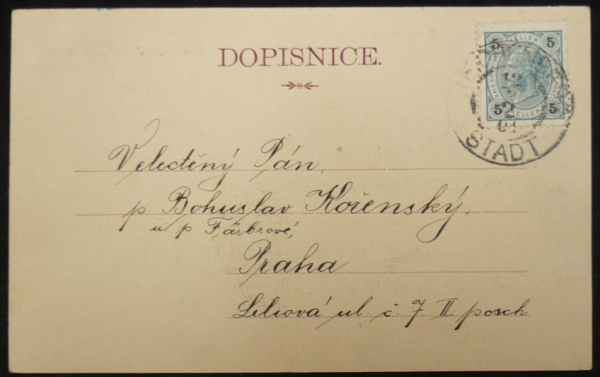 DOPISNICE.
5
HELLER
5 5
12
2
01
STADT
Velectěný Pán,
p Bohuslav Kořenský,
u p Färbrové,
Praha
Liliová ul č. 7 II posch